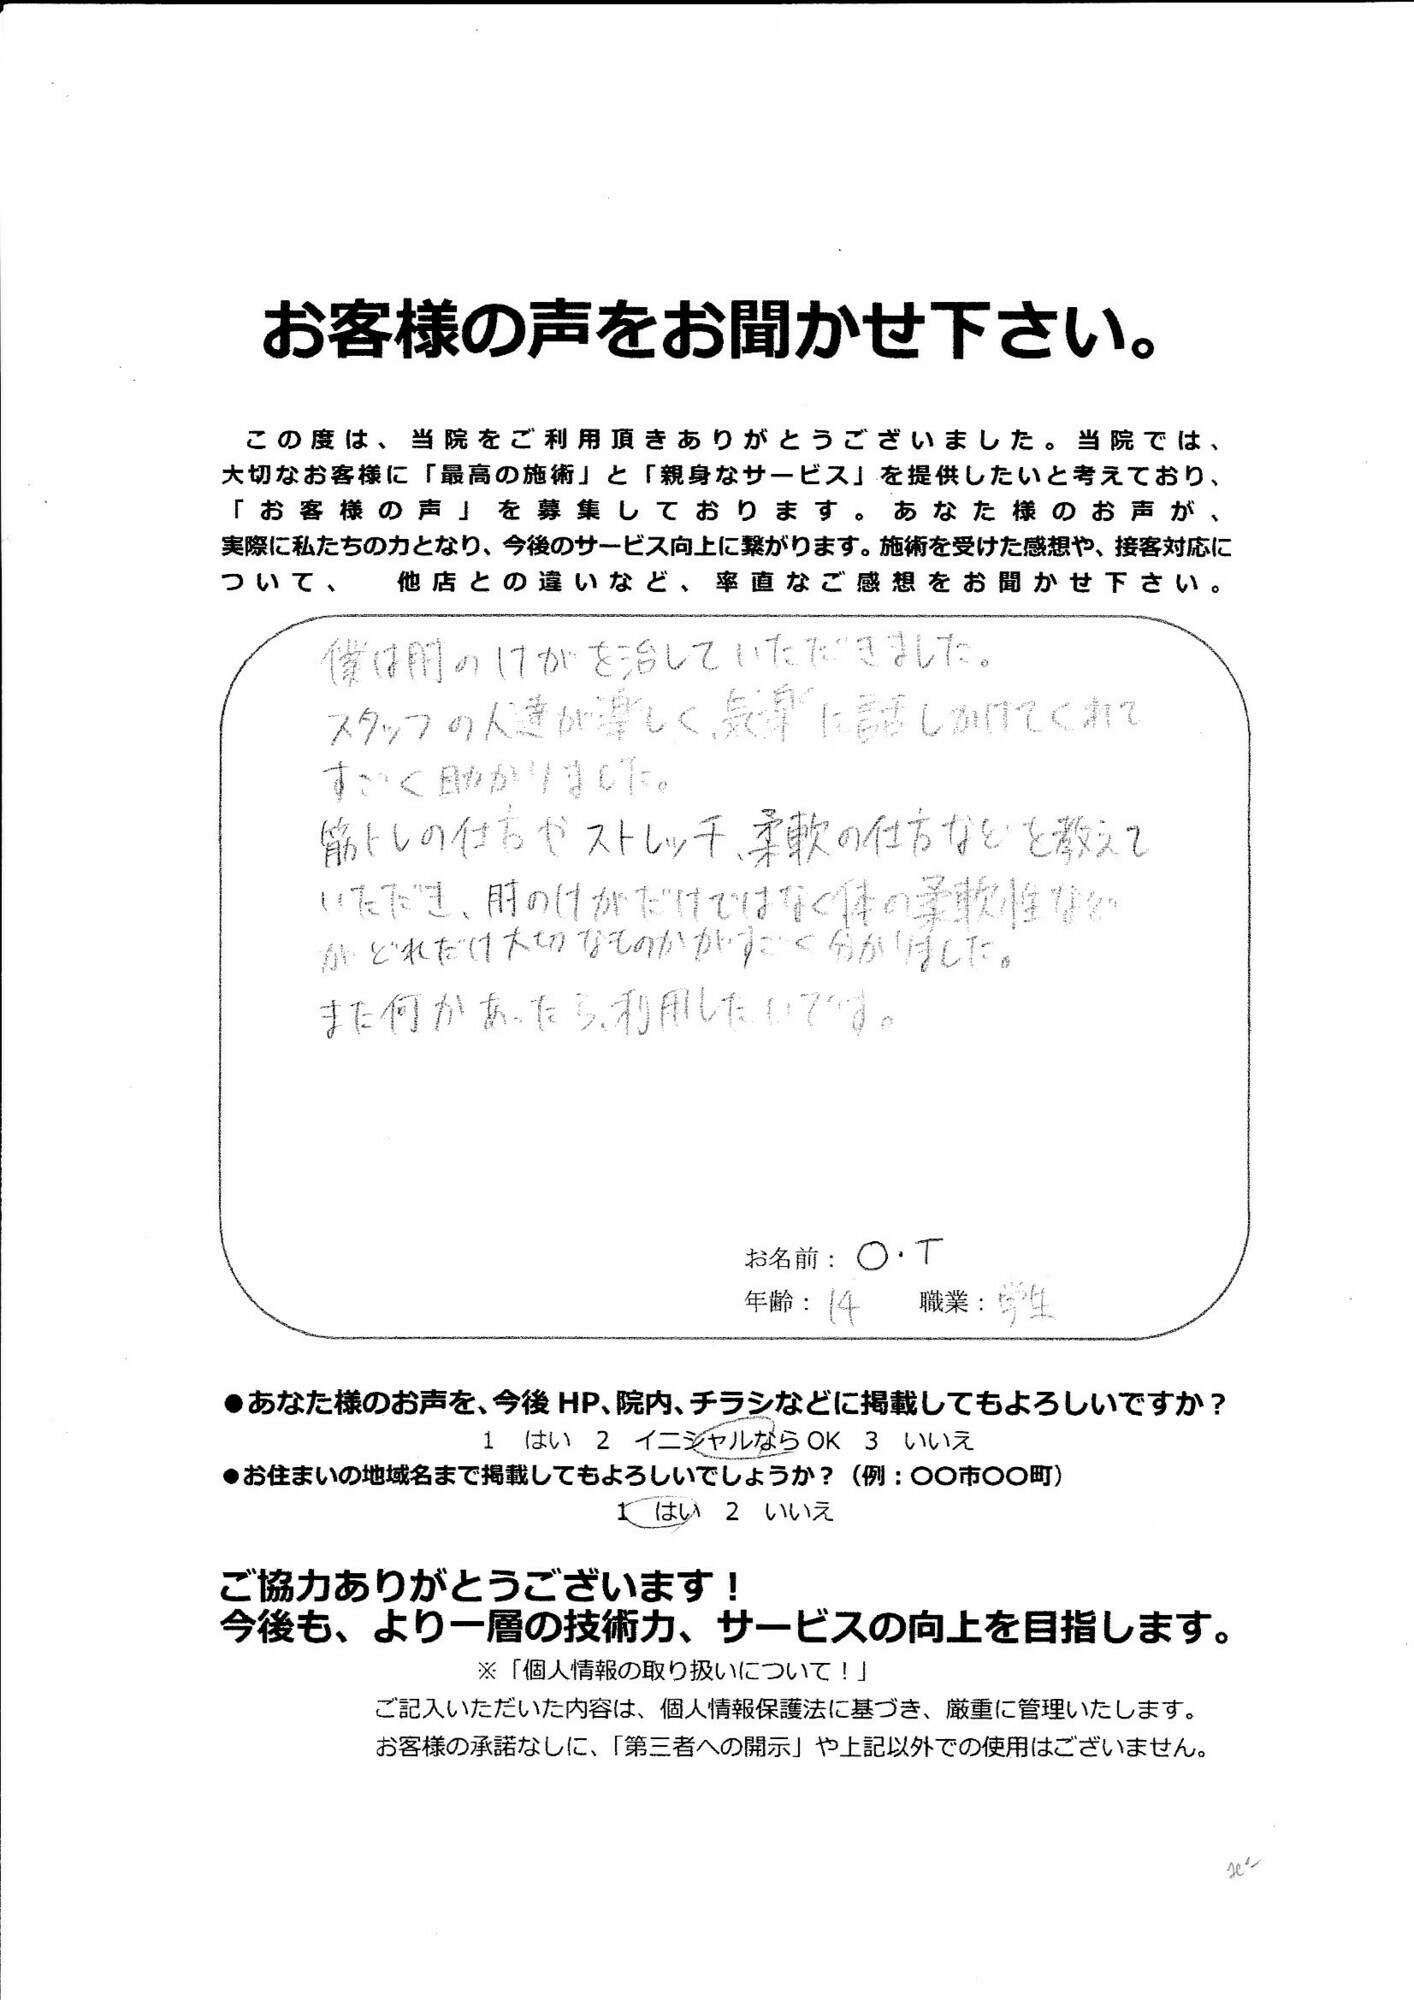 お客様の声をお聞かせ下さい。
この度は、当院をご利用頂きありがとうございました。当院では、
大切なお客様に「最高の施術」と「親身なサービス」を提供したいと考えており、
「お客様の声」を募集しております。あなた様のお声が、
実際に私たちの力となり、今後のサービス向上に繋がります。施術を受けた感想や、接客対応に
ついて、 他店との違いなど、率直なご感想をお聞かせ下さい。
僕は肘のけがを治していただきました。
スタッフの人達が楽しく、気楽に話しかけてくれて
すごく助かりました。
筋トレの仕方やストレッチ、柔軟の仕方などを教えて
いただき、肘のけがだけではなく体の柔軟性など
がどれだけ大切なものかがすごく分かりました。
また何かあったら、利用したいです。
お名前：O・T
年齢：14 職業：学生
●あなた様のお声を、今後 HP、院内、チラシなどに掲載してもよろしいですか？
1 はい 2 イニシャルならOK 3 いいえ
●お住まいの地域名まで掲載してもよろしいでしょうか？（例：〇〇市〇〇町）
1 はい 2 いいえ
ご協力ありがとうございます！
今後も、より一層の技術力、サービスの向上を目指します。
※「個人情報の取り扱いについて！」
ご記入いただいた内容は、個人情報保護法に基づき、厳重に管理いたします。
お客様の承諾なしに、「第三者への開示」や上記以外での使用はございません。